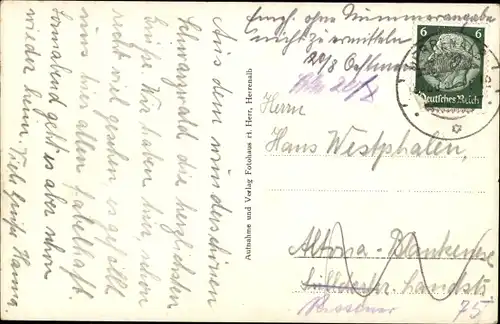 Aus dem wunderschönen
Schwarzwald die herzlichsten
Grüße. Wir haben hier schon
recht viel gesehen, es gefällt
uns hier allen fabelhaft.
Sonnabend geht es aber schon
wieder heim. Viele Grüße Hanna.
Aufnahme und Verlag Fotohaus rt. Herr, Herrenalb
Empf. ohne Nummerangabe
nicht zu ermitteln
20/8
6 6
Deutsches Reich
HERRENALB
Herrn
Hans Westphalen,
Altona-Blankenese
Landstr.
75